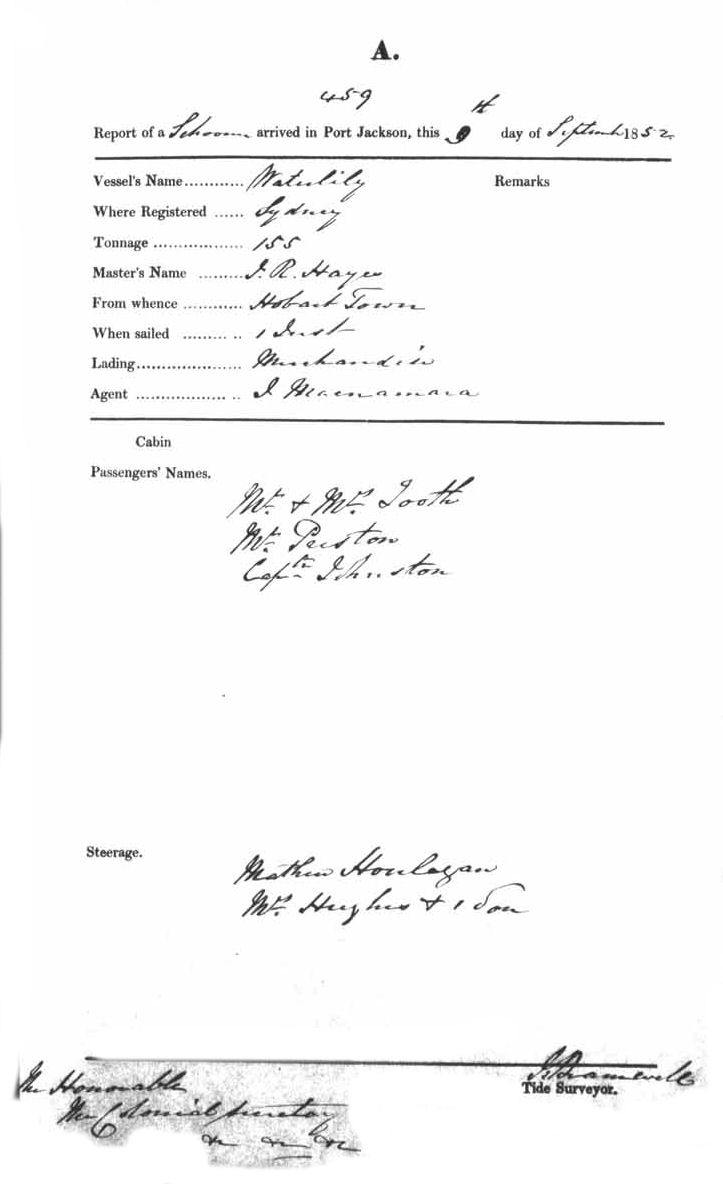 A.
459
Report of a Schooner arrived in Port Jackson, this 9th day of September 1852
Vessel's Name............ Waterlily Remarks
Where Registered ...... Sydney
Tonnage .................. 155
Master's Name ......... J. R. Hayes
From whence ............ Hobart Town
When sailed ......... .. 1 Inst
Lading..................... Merchandise
Agent .................. .. J Macnamara
Cabin
Passengers' Names.
Mr. & Mrs. Tooth
Mr. Preston
Captn Johnston
Steerage.
Mathew Houlagan
Mrs. Hughes & 1 Son
Tide Surveyor.
The Honorable
The Colonial Secretary
&c &c &c